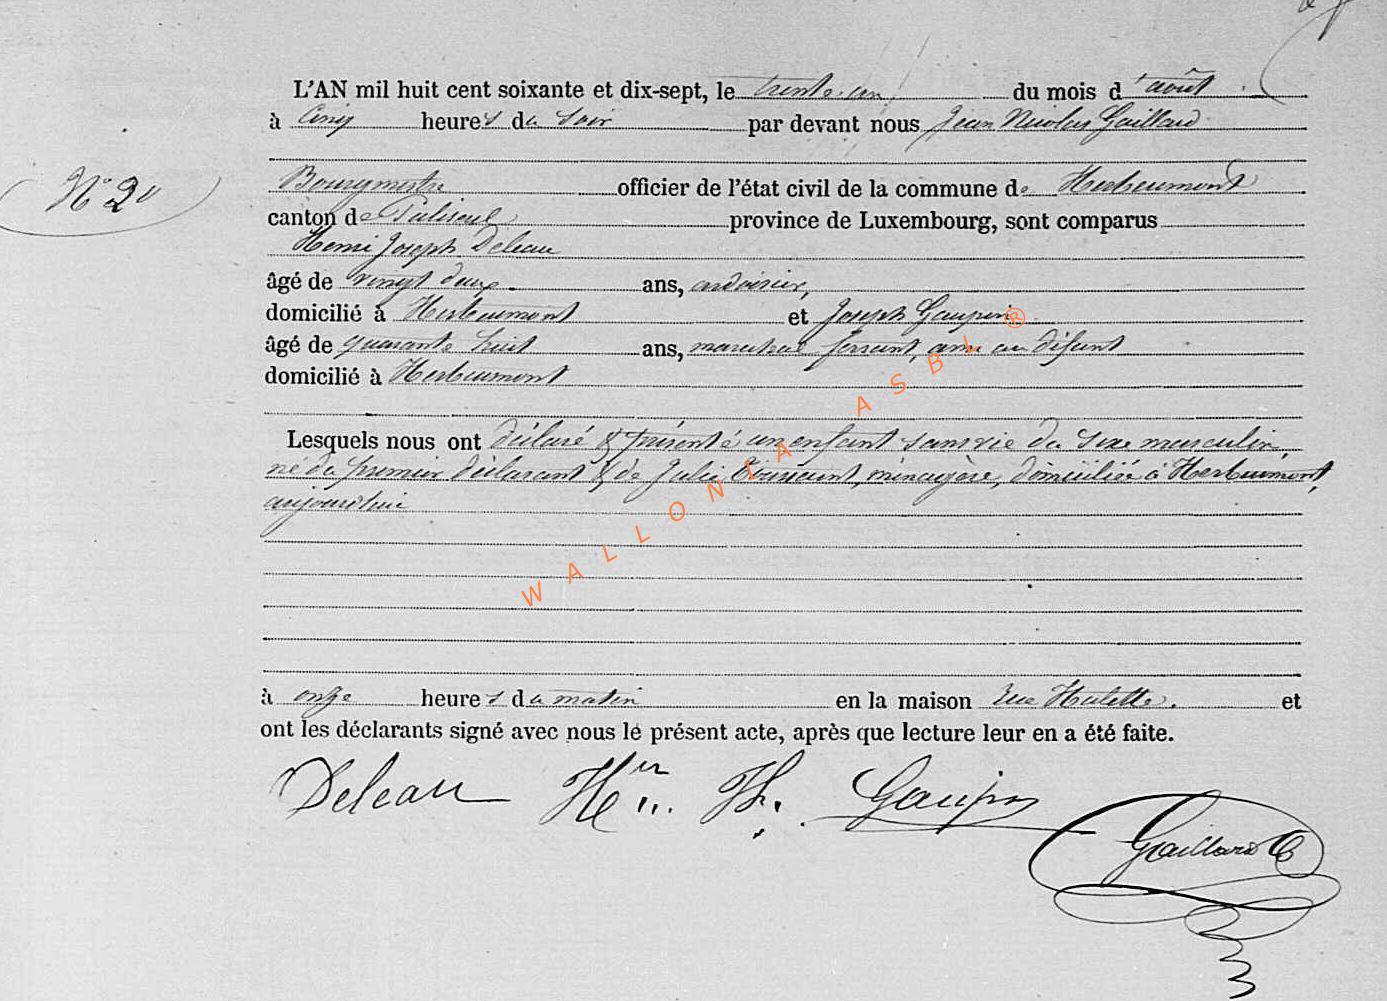 L'AN mil huit cent soixante et dix-sept, le trente un du mois d'août
à Cinq heures du Soir par devant nous Jean Nicolas Gaillard
Bourgmestre officier de l'état civil de la commune de Herbeumont
N° 20
canton de Paliseul province de Luxembourg, sont comparus
Henri Joseph Deleau
âgé de vingt deux ans, ardoisier,
domicilié à Herbeumont et Joseph Gaupin
âgé de quarante huit ans, marechal ferrant, ami au défunt
domicilié à Herbeumont
Lesquels nous ont déclaré & présenté un enfant sans vie du sexe masculin,
né du premier déclarant & de Julie Toussaint, ménagère, domiciliée à Herbeumont,
aujourd'hui
WALLONIA ASBL ®
à onze heures du matin en la maison rue Hulette. et
ont les déclarants signé avec nous le présent acte, après que lecture leur en a été faite.
Deleau Hri Jh. Gaupin
Gaillard